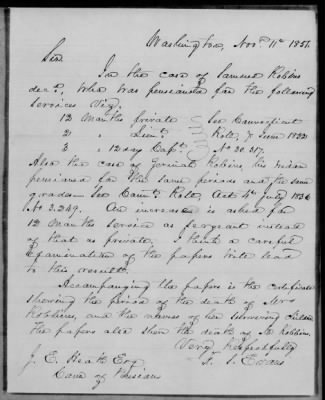 Washington, Nov. 11th 1851.
Sir.
In the case of Samuel Robins
decd, who was pensioned for the following
services Viz.
12 Months private See Connecticut
2 " Lieut. Rolls, 7 June 1832
3 " 12 day Capt. No 20.817.
Also the case of Jerimah Robbins, his widow
pensioned for the same periods and the same
grades - See Connt. Rolls, Act 4th July 1836
No 2.249. An increase is asked for
12 Months service as Sergeant instead
of that as private. I think a careful
examination of the papers will lead
to this result.
Accompanying the papers is the certificate
showing the period of the death of Mrs
Robbins, and the names of her surviving children
The papers also show the death of Mr Robbins.
Very respectfully
J. E. Heath Esq F. S. Evans
Com of Pensions